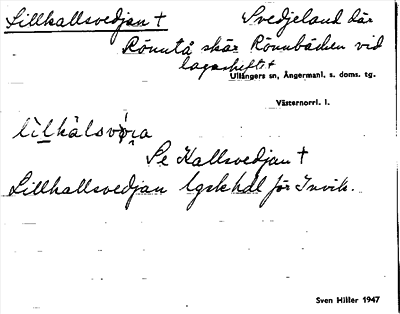 Lillhallsvedjan † Svedjeland där
Rönntå skär Rönnbäcken vid
lagaskift †
Ullångers sn, Ångermanl. s. doms. tg.
Västernorrl. l.
Se Hallsvedjan †
Lillhallsvedjan lgskhdl för Invik.
Sven Hiller 1947